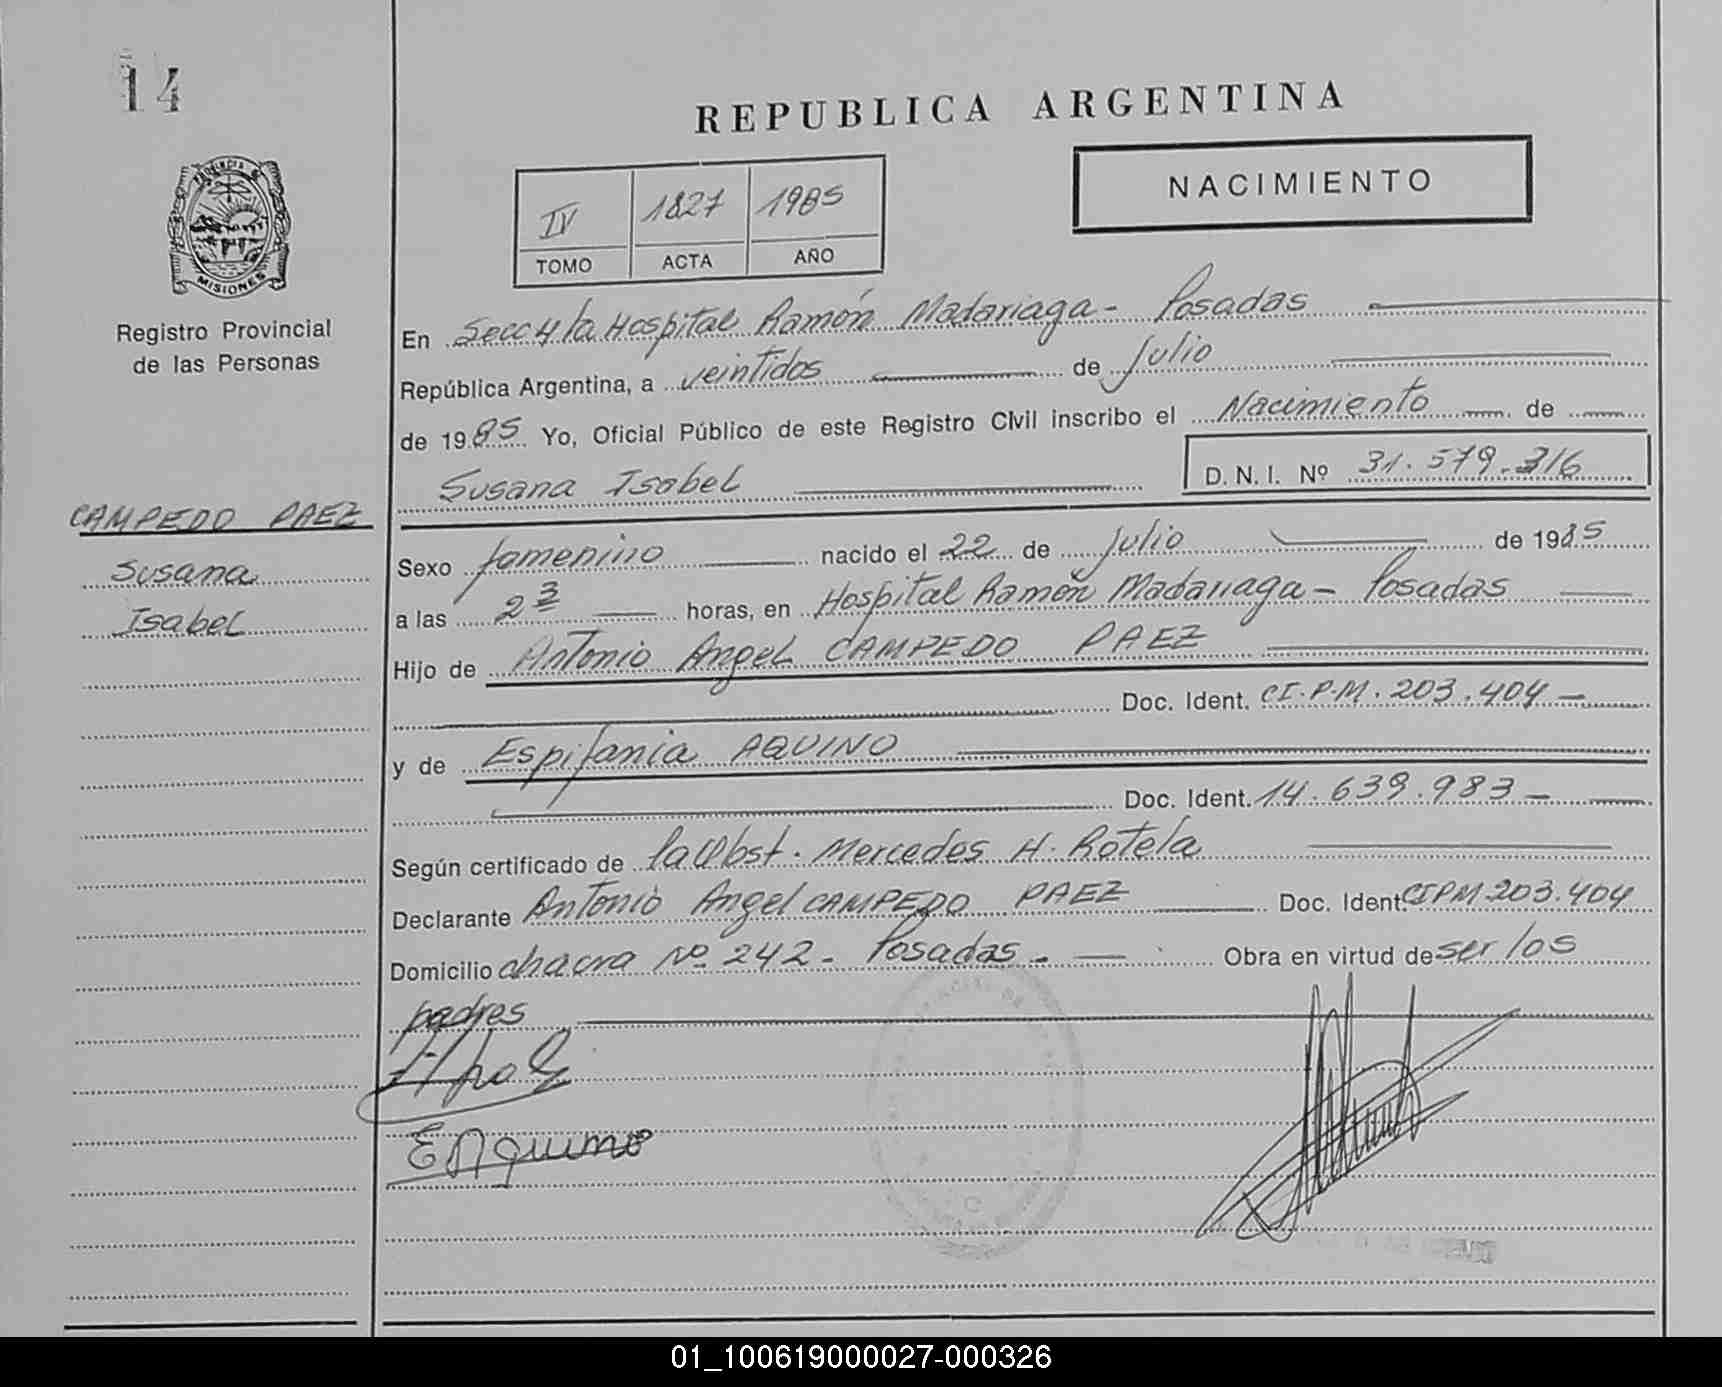 14
REPUBLICA ARGENTINA
NACIMIENTO
IV 1827 1985
TOMO ACTA AÑO
PROVINCIA DE
MISIONES
Registro Provincial
de las Personas
En Secc 4ta Hospital Ramón Madariaga - Posadas
República Argentina, a veintidos de Julio
de 1985 Yo, Oficial Público de este Registro Civil inscribo el Nacimiento de
Susana Isabel D. N. I. Nº 31.579.316
CAMPEDO PAEZ
Susana
Isabel
Sexo famenino nacido el 22 de Julio de 1985
a las 2 3 horas, en Hospital Ramón Madariaga - Posadas
Hijo de Antonio Angel CAMPEDO PAEZ
Doc. Ident. CI.P.M. 203.404 -
y de Espifania AQUINO
Doc. Ident. 14.639.983 -
Según certificado de la Obst. Mercedes H. Rotela
Declarante Antonio Angel CAMPEDO PAEZ Doc. Ident. CIPM 203.404
Domicilio chacra Nº 242 - Posadas - Obra en virtud de ser los
padres
E Aquino
01_100619000027-000326